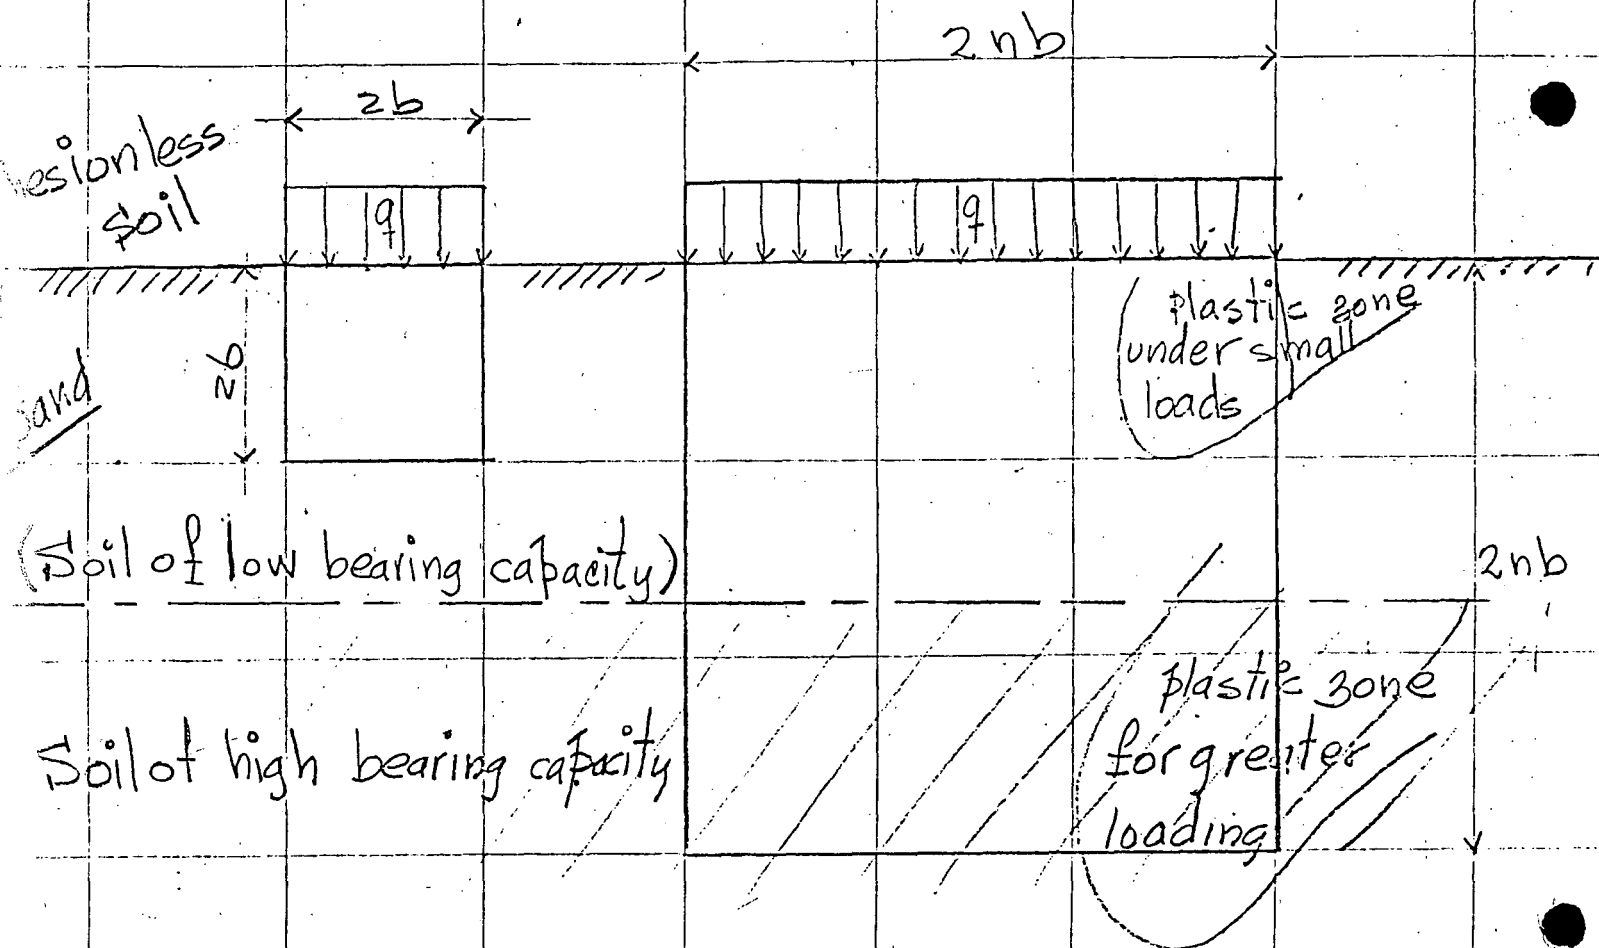 2nb
2b
hesionless
soil
q
q
plastic zone
under small
loads
2b
sand
(Soil of low bearing capacity)
2nb
plastic zone
for greater
loading
Soil of high bearing capacity